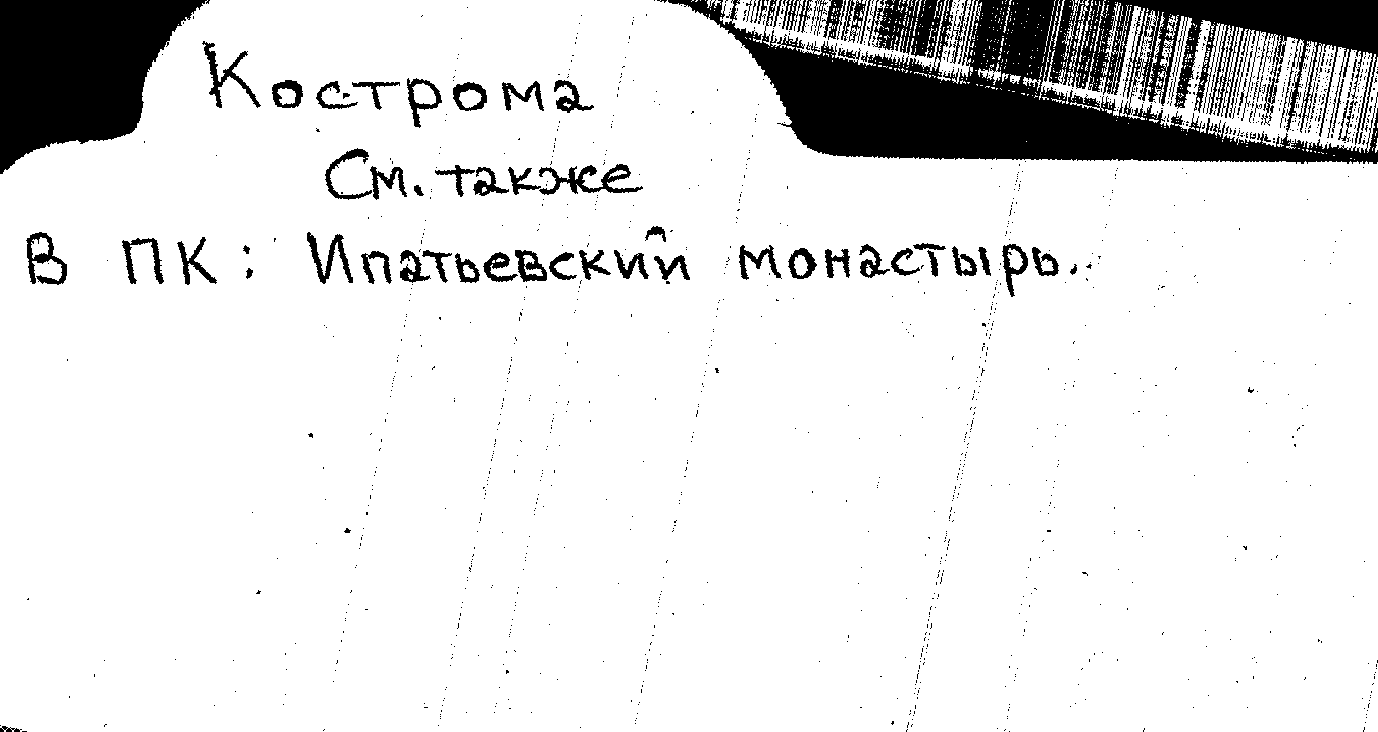 Кострома
См. также
В ПК: Ипатьевский монастырь.